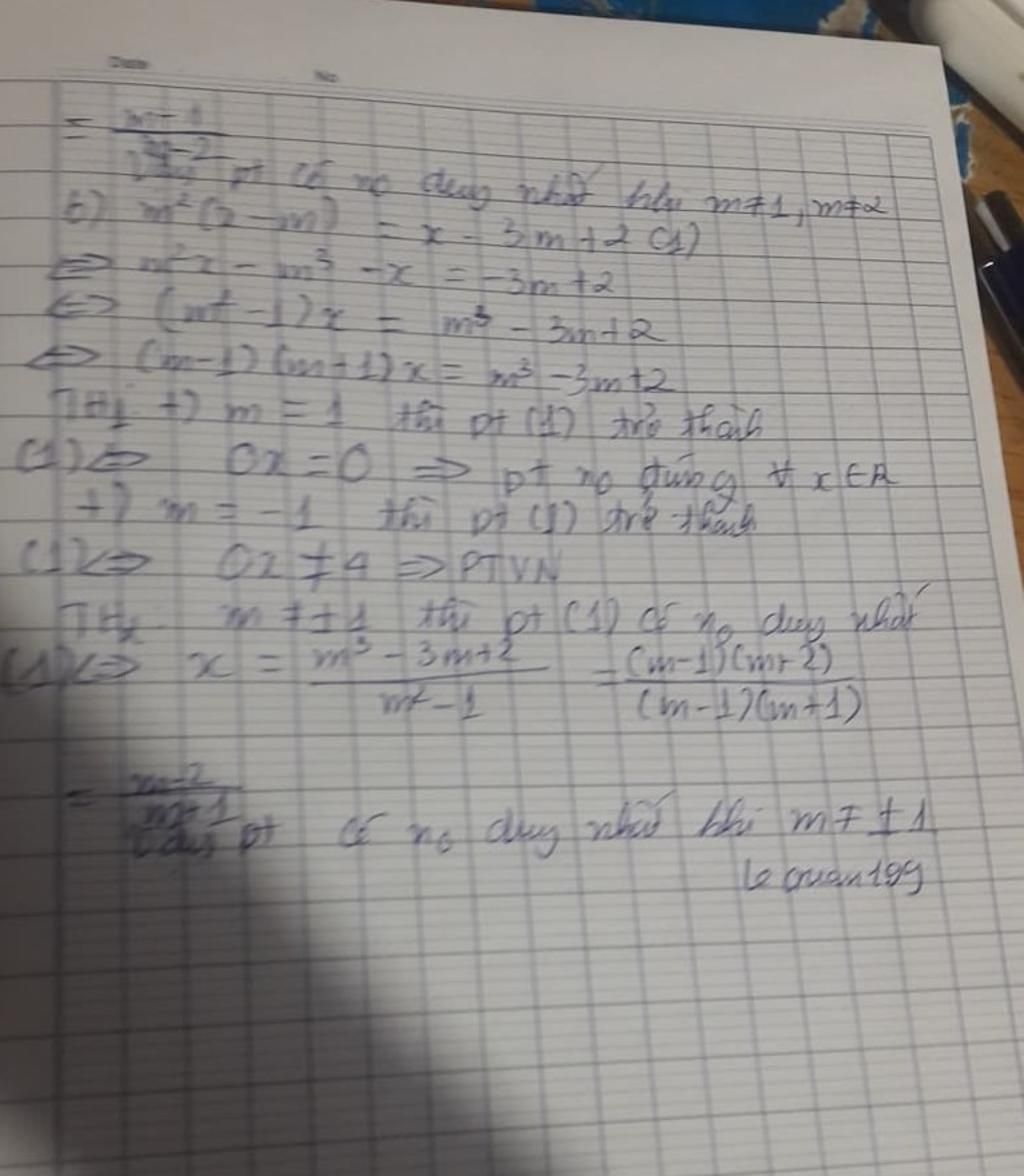 Date No
= m+1 / m-2
Vậy pt có no duy nhất khi m≠1, m≠2
b) m²(x-m) = x - 3m+2 (1)
⇔ m²x - m³ - x = -3m+2
⇔ (m²-1)x = m³ - 3m+2
⇔ (m-1)(m+1)x = m³-3m+2
TH1 +) m = 1 thì pt (1) trở thành
(1)⇔ 0x=0 ⇒ pt no đúng ∀ x∈R
+) m = -1 thì pt (1) trở thành
(1)⇔ 0x ≠ 4 ⇒ PTVN
TH2 m ≠ ±1 thì pt (1) có no duy nhất
(1)⇔ x = m³-3m+2 / m²-1 = (m-1)(m+2) / (m-1)(m+1)
= m+2 / m+1
Vậy pt có no duy nhất khi m ≠ ±1